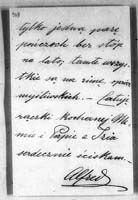 tylko jedna para
pończoch bez stóp
na lato, tamte wszy-
stkie są na zimę,
myśliwskich. — Całuję
rączki kochanej Ma-
mie i Papie i Izia
serdecznie ściskam. —
Alfred